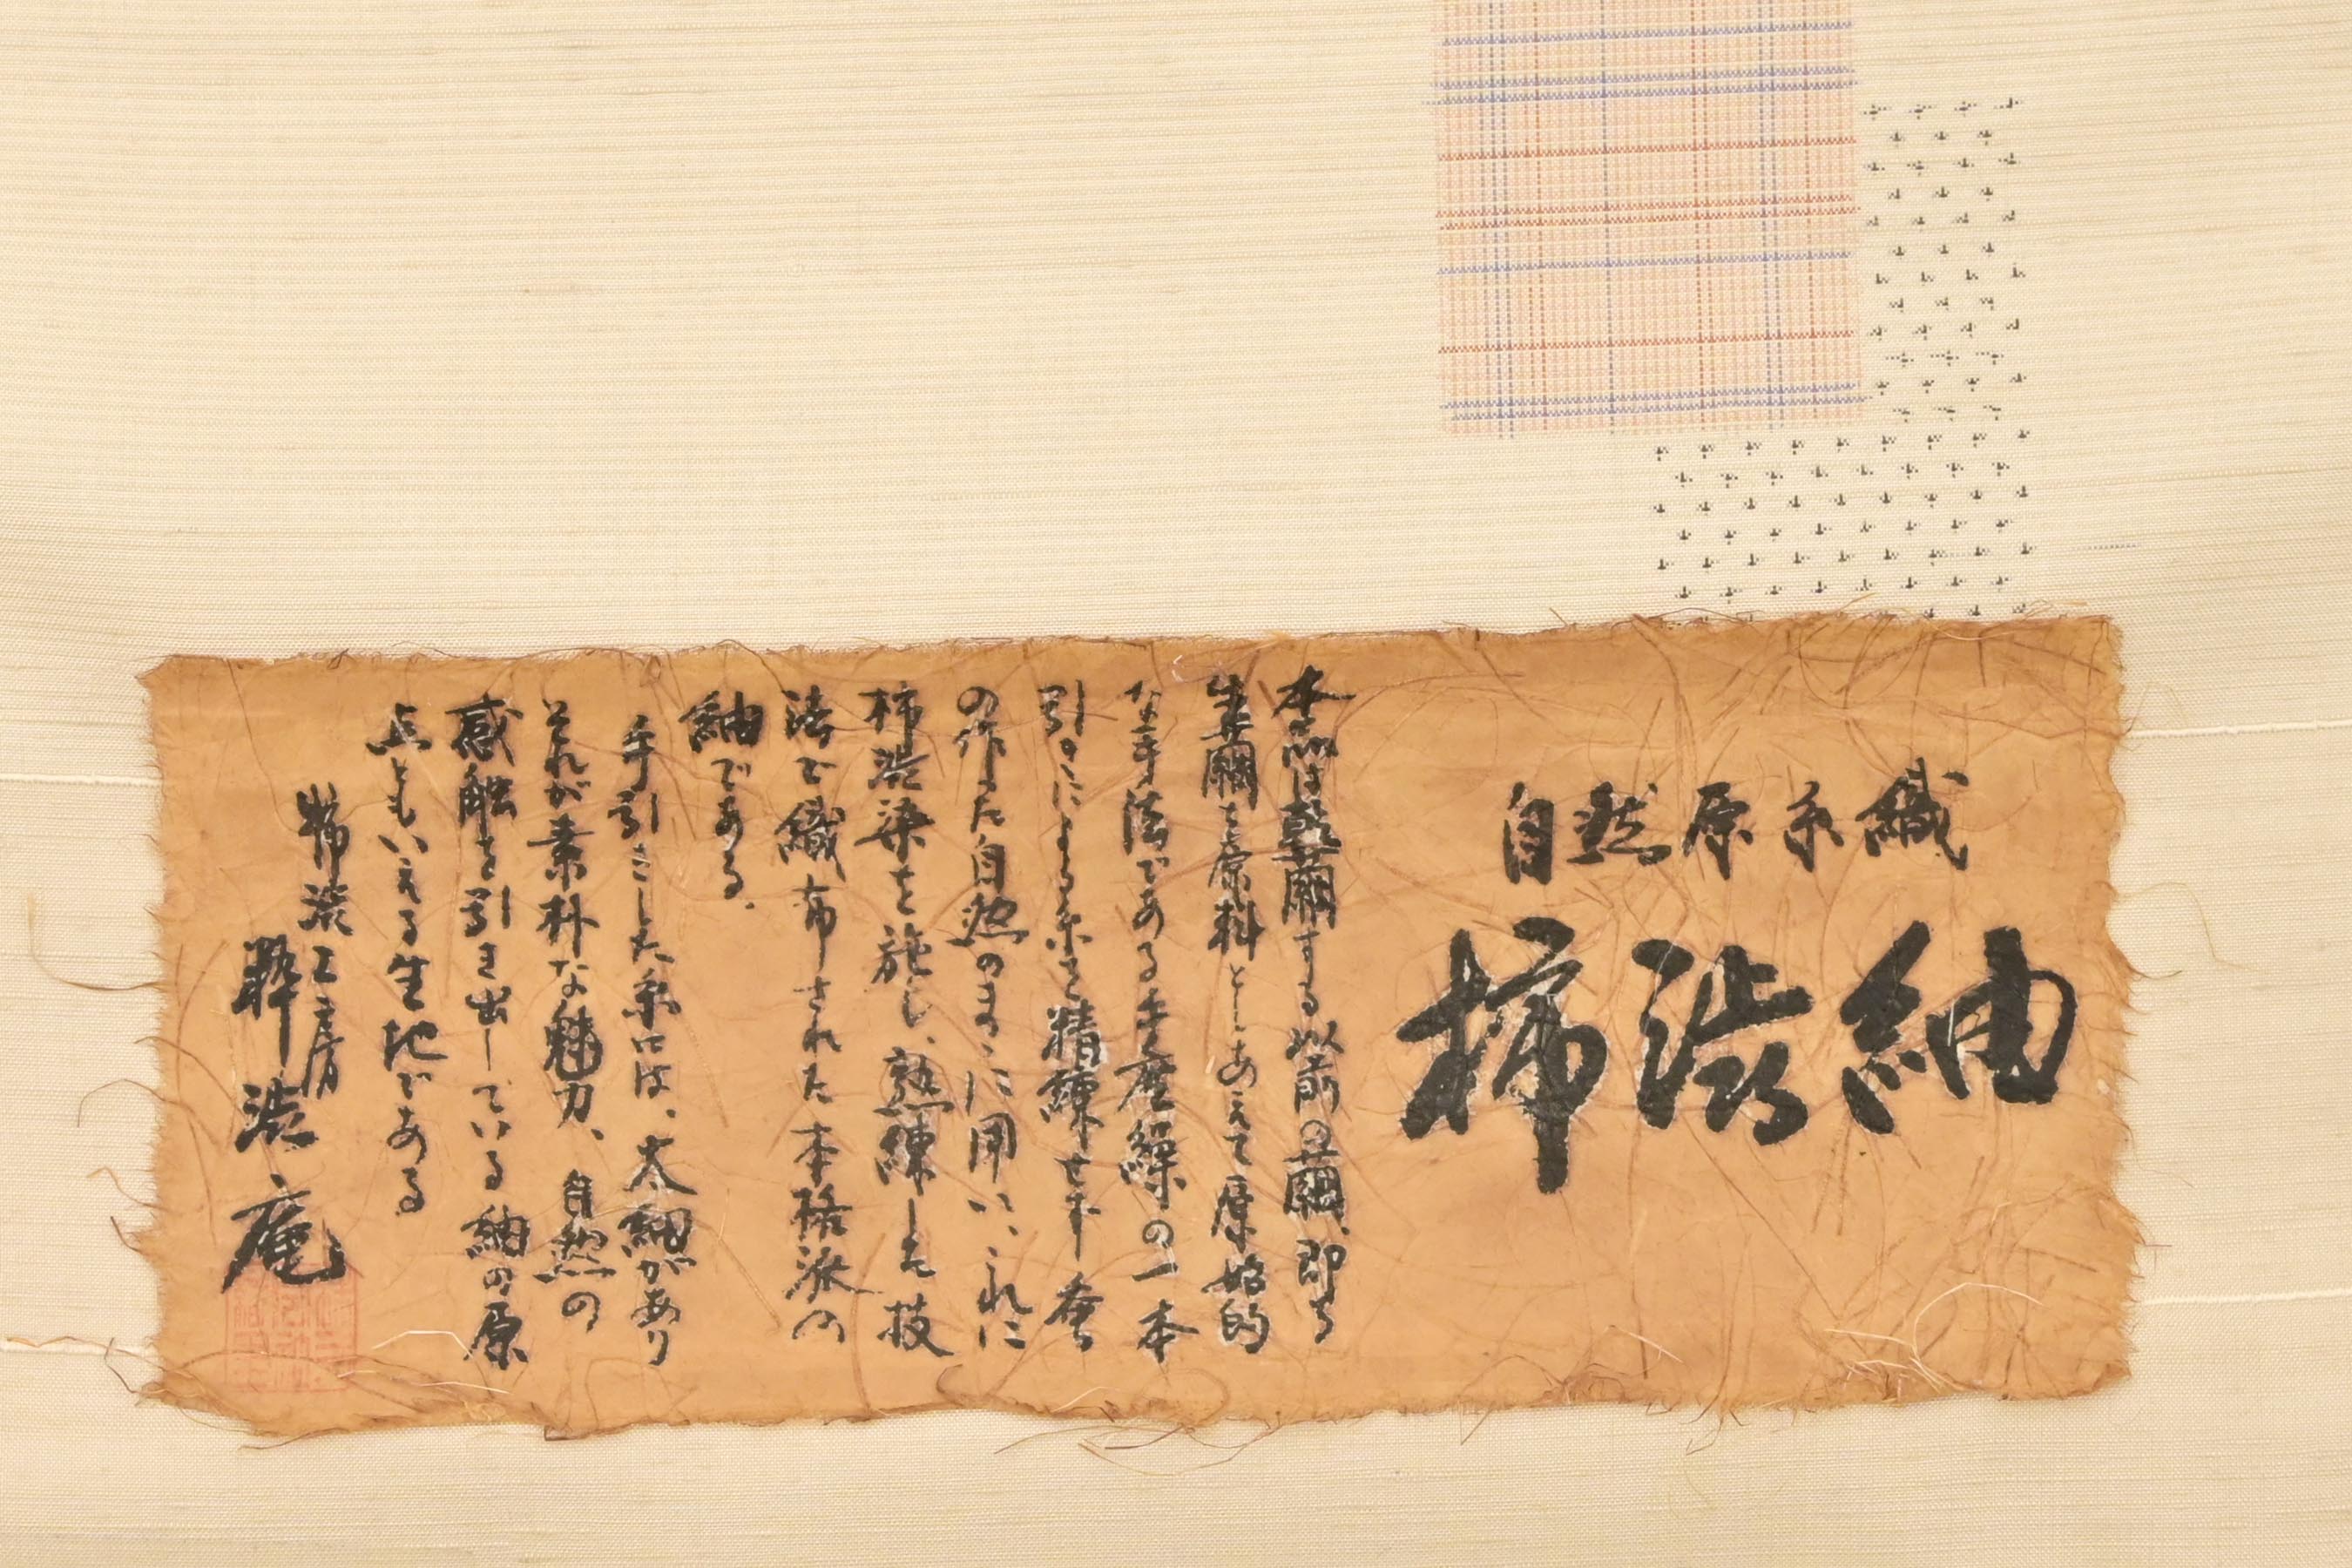 自然原糸織
柿渋紬
本品は乾繭する以前の繭、即ち
生繭を原料としあえて原始的
な手法である手座繰の一本
引きによる糸を精練せず蚕
の作った自然のままに用い、これに
柿渋染を施し、熟練した技
法で織布された本格派の
紬である。
手引きした糸には、太細があり
それが素朴な魅力、自然の
感触を引き出している紬の原
点ともいえる生地である
柿渋工房
渋庵